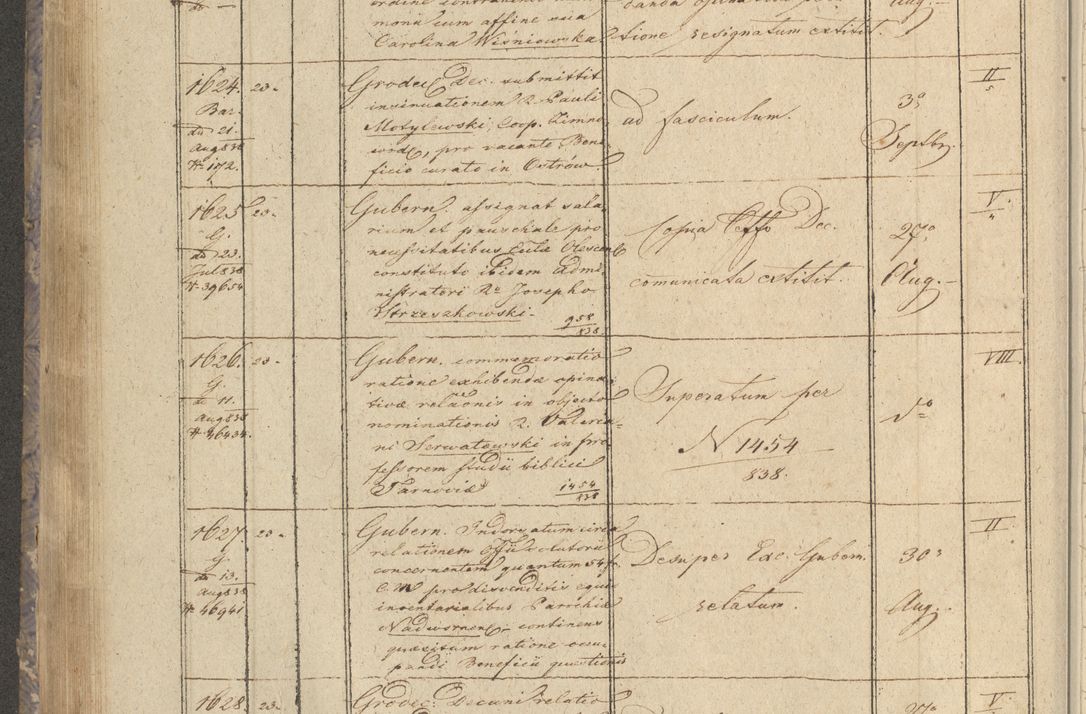 monii cum affine sua
Carolina Wiśniowska
tione resignatum extitit.
Aug.
1624. 23.
Bar.
do 21.
Aug 838
N 172.
Grodec. Dec. submittit
insinuationem R. Pauli
Motylewski, Coop. Zimno
wod, pro vacante Bene
ficio curato in Ostrów.
ad fasciculum.
3a
Septbr.
II
5
1625 23.
G.
do 23.
Jul 838
N 39654
Gubern. assignat sala
rium et pauschale pro
necessitatibus
constituto ibidem Admi
nistratori Rdo Josepho
Strzeszkowski.
958
838.
Copia Dec.
comunicata extitit.
27a
Aug.
V
1626. 23.
G.
do 11.
Aug 838
N 46434.
Gubern. commemoratio
ratione exhibendæ opina
tivæ relaõnis in objecto
nominationis R. Valeria
ni Serwatowski in pro
fessorem studii biblici
Tarnoviæ
1454
838
Superatum per
N 1454
838.
do
VIII.
1627. 23.
G.
do 13.
Aug 838
N 46941
Gubern. Indorsatum circa
relationem
concernentem quantum 54 f
C.M pro disvenditis equis
inventarialibus Parochiæ
Nadwornen, continens
quæsitum ratione occu
pandi Beneficii quæstionis
Desuper Exc. Gubern.
relatum.
30a
Aug.
II
1628. 23.
Grodec. Decani relatio
V